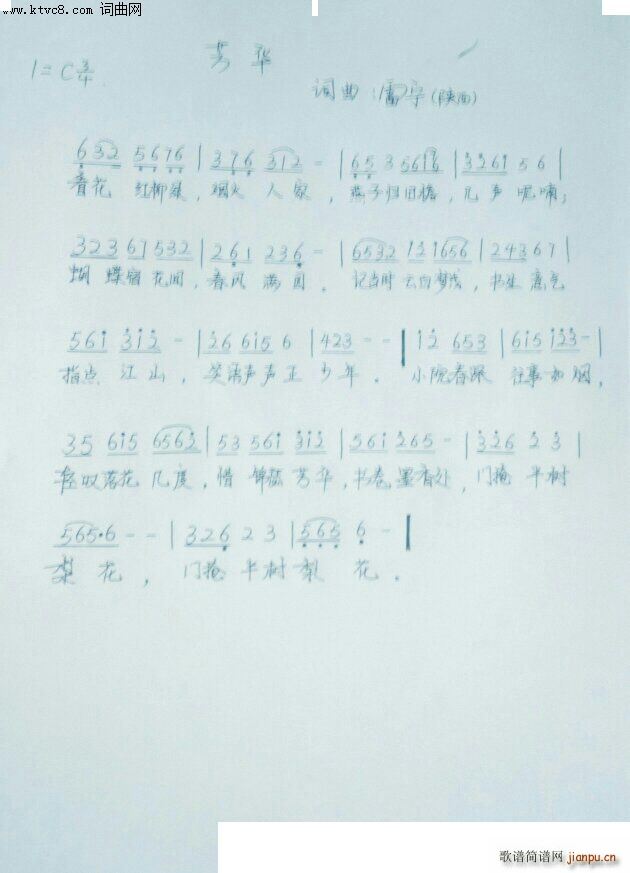 www.ktvc8.com 词曲网
芳华
1=C 3/4
词曲:雷宇(陕西)
632 5676 | 376 312 - | 655 35616 | 3261 5 6 |
青花 红柳绿,烟火 人家,燕子归旧檐,几声呢喃;
323 67 532 | 261 236 - | 6532 121656 | 243 67 |
蝴蝶宿花间,春风满园。记当时云白 书生意气
561 312 - | 26 615 6 | 423 - - | 12 653 | 615 123 - |
指点江山,笑语声声正少年。小院春深 往事如烟,
35 615 6562 | 53 561 312 | 561 265 - | 326 2 3 |
轻叹落花几度,惜锦瑟芳华,书卷墨香处,门掩半树
565·6 - - | 326 2 3 | 565 6 - |
梨花,门掩半树梨花。
歌谱简谱网 jianpu.cn